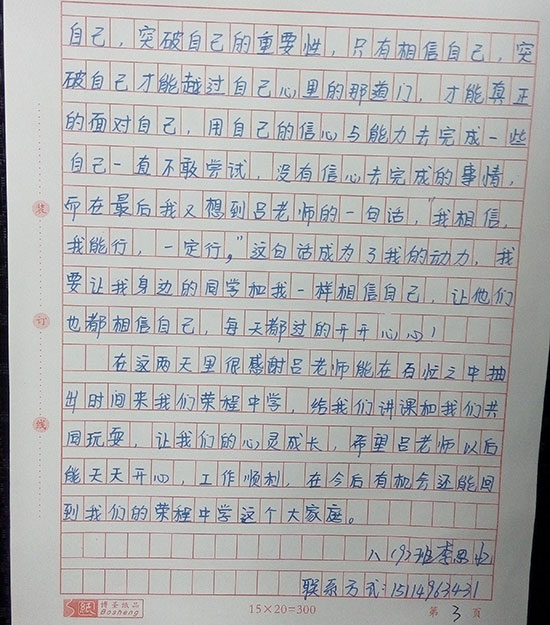 自己，突破自己的重要性，只有相信自己，突
破自己才能越过自己心里的那道门，才能真正
的面对自己，用自己的信心与能力去完成一些
自己一直不敢尝试，没有信心去完成的事情，
而在最后我又想到吕老师的一句话，“我相信，
我能行，一定行，”这句话成为了我的动力，我
要让我身边的同学和我一样相信自己，让他们
也都相信自己，每天都过的开开心心！
在这两天里很感谢吕老师能在百忙之中抽
出时间来我们荣程中学，给我们讲课和我们共
同玩耍，让我们的心灵成长，希望吕老师以后
能天天开心，工作顺利，在今后有机会还能回
到我们的荣程中学这个大家庭。
八（9）班李思
联系方式：15114963431
装
订
线
博圣纸品
Bosheng
15×20=300
第 3 页